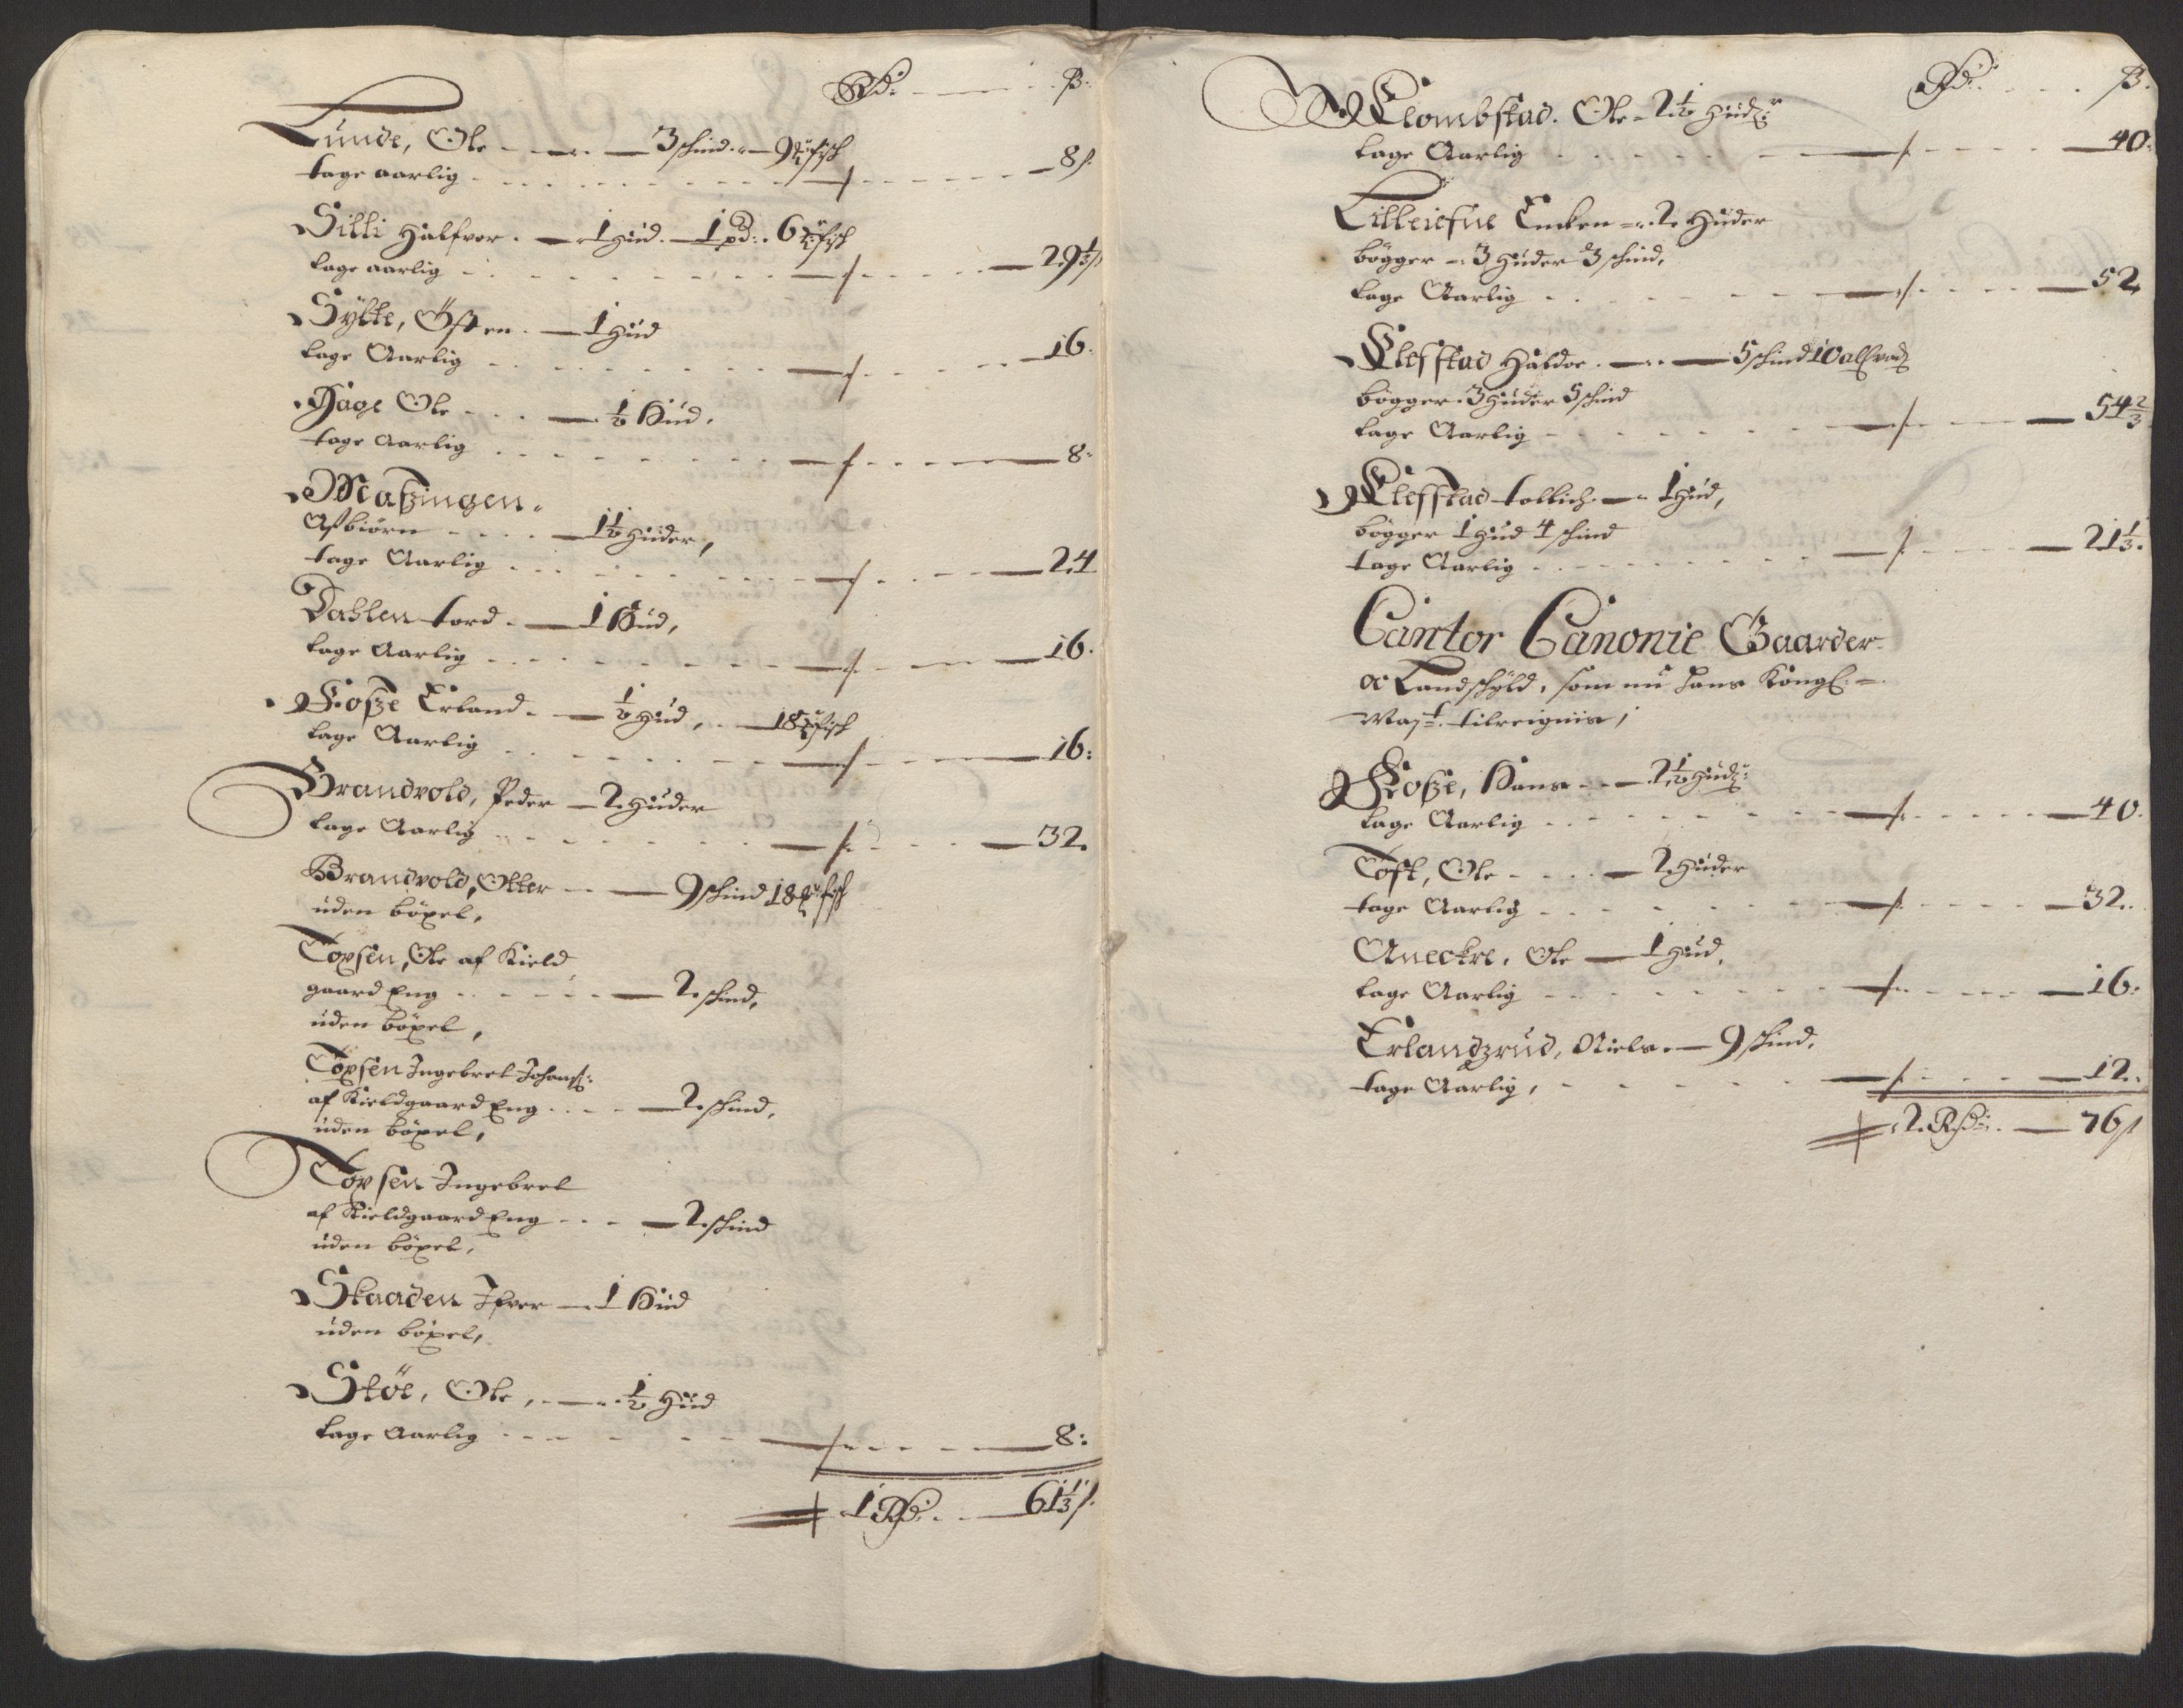 Rd: ß:
Lunde, Ole 3 schind. 9 fisch
tage aarlig 8 ß
Silli Halfvor. 1 Hud. 1 pd: 6 fisch
tage aarlig 29 1/3 ß
Sylte, Østen. 1 Hud
tage Aarlig 16.
Hage Ole 1/2 Hud.
tage Aarlig 8:
Maszingen.
Asbiørn 1 1/2 Huder,
tage Aarlig 24
Dahlen tord. 1 Hud,
tage Aarlig 16.
Fosze Erland. 1/2 Hud, 18 fisch
tage Aarlig 16:
Brandvold, Peder 2 Huder
tage Aarlig 32.
Brandvold, Otter 9 schind 18 fisch
uden böxel,
Toxsen, Ole af Kield
gaard Eng 2 schind,
uden böxel,
Toxsen Ingebret Johanß:
af Kieldgaard Eng 2 schind,
uden böxel,
Toxsen Ingebret
af Kieldgaard Eng 2 schind
uden böxel,
Skaaden Ifver 1 Hud
uden böxel,
Støe, Ole, 1/2 Hud
tage Aarlig 8:
1 Rd: 61 1/3 ß.
Rd: ß:
Klombstad. Ole 2 1/2 Hudr
tage Aarlig 40:
Lilleiefne Encken 2 Huder
bögger 3 Huder 3 schind,
tage Aarlig 52,
Klefstad Haldor. 5 schind 10
bögger 3 Huder 5 schind
tage Aarlig 54 2/3
Klefstad tollich 1 Hud,
bögger 1 Hud 4 schind
tage Aarlig 21 1/3.
Cantor Canonie Gaarder
oc Landschyld, som nu hans Kongl:
Mayt. tilreignis,
Fosze, Hans 2 1/2 Hudr:
tage Aarlig 40.
Toft, Ole 2 Huder
tage Aarlig 32.
Aneckre, Ole 1 Hud,
tage Aarlig 16:
Erlandzrud, Niels. 9 schind,
tage Aarlig, 12.
2 Rd: 76 ß